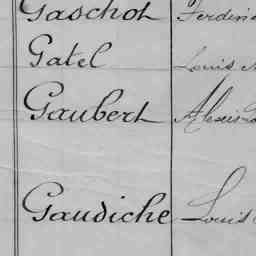 Gaschot Ferdin
Gatel Louis
Gaubert Alexis
Gaudiche Louis